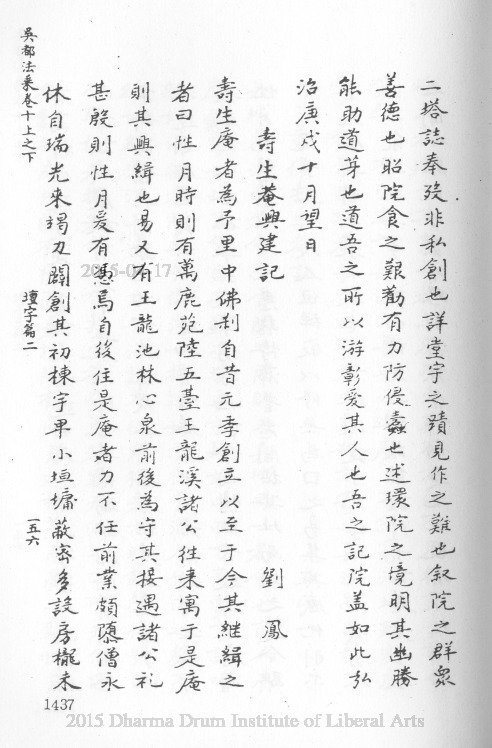 二塔誌奉歿非私創也詳堂宇之蹟見作之難也叙院之群眾
善德也昭院食之艱勸有力防侵蠹也述環院之境明其幽勝
能助道芽也道吾之所以游彰愛其人也吾之記院盖如此弘
治庚戌十月望日
壽生菴興建記
劉鳳
壽生庵者為予里中佛刹自昔元季創立以至于今其継緝之
者曰性月時則有萬鹿苑陸五臺王龍溪諸公往来寓于是庵
則其興緝也易又有王龍池林心泉前後為守其接遇諸公礼
甚殷則性月爰有憑焉自後住是庵者力不任前業頗隳僧永
休自瑞光来竭力闢創其初棟宇卑小垣墉蔽密多設房櫳未
吳都法乘卷十上之下
壇宇篇二
一五六
1437
2015-04-17
2015 Dharma Drum Institute of Liberal Arts